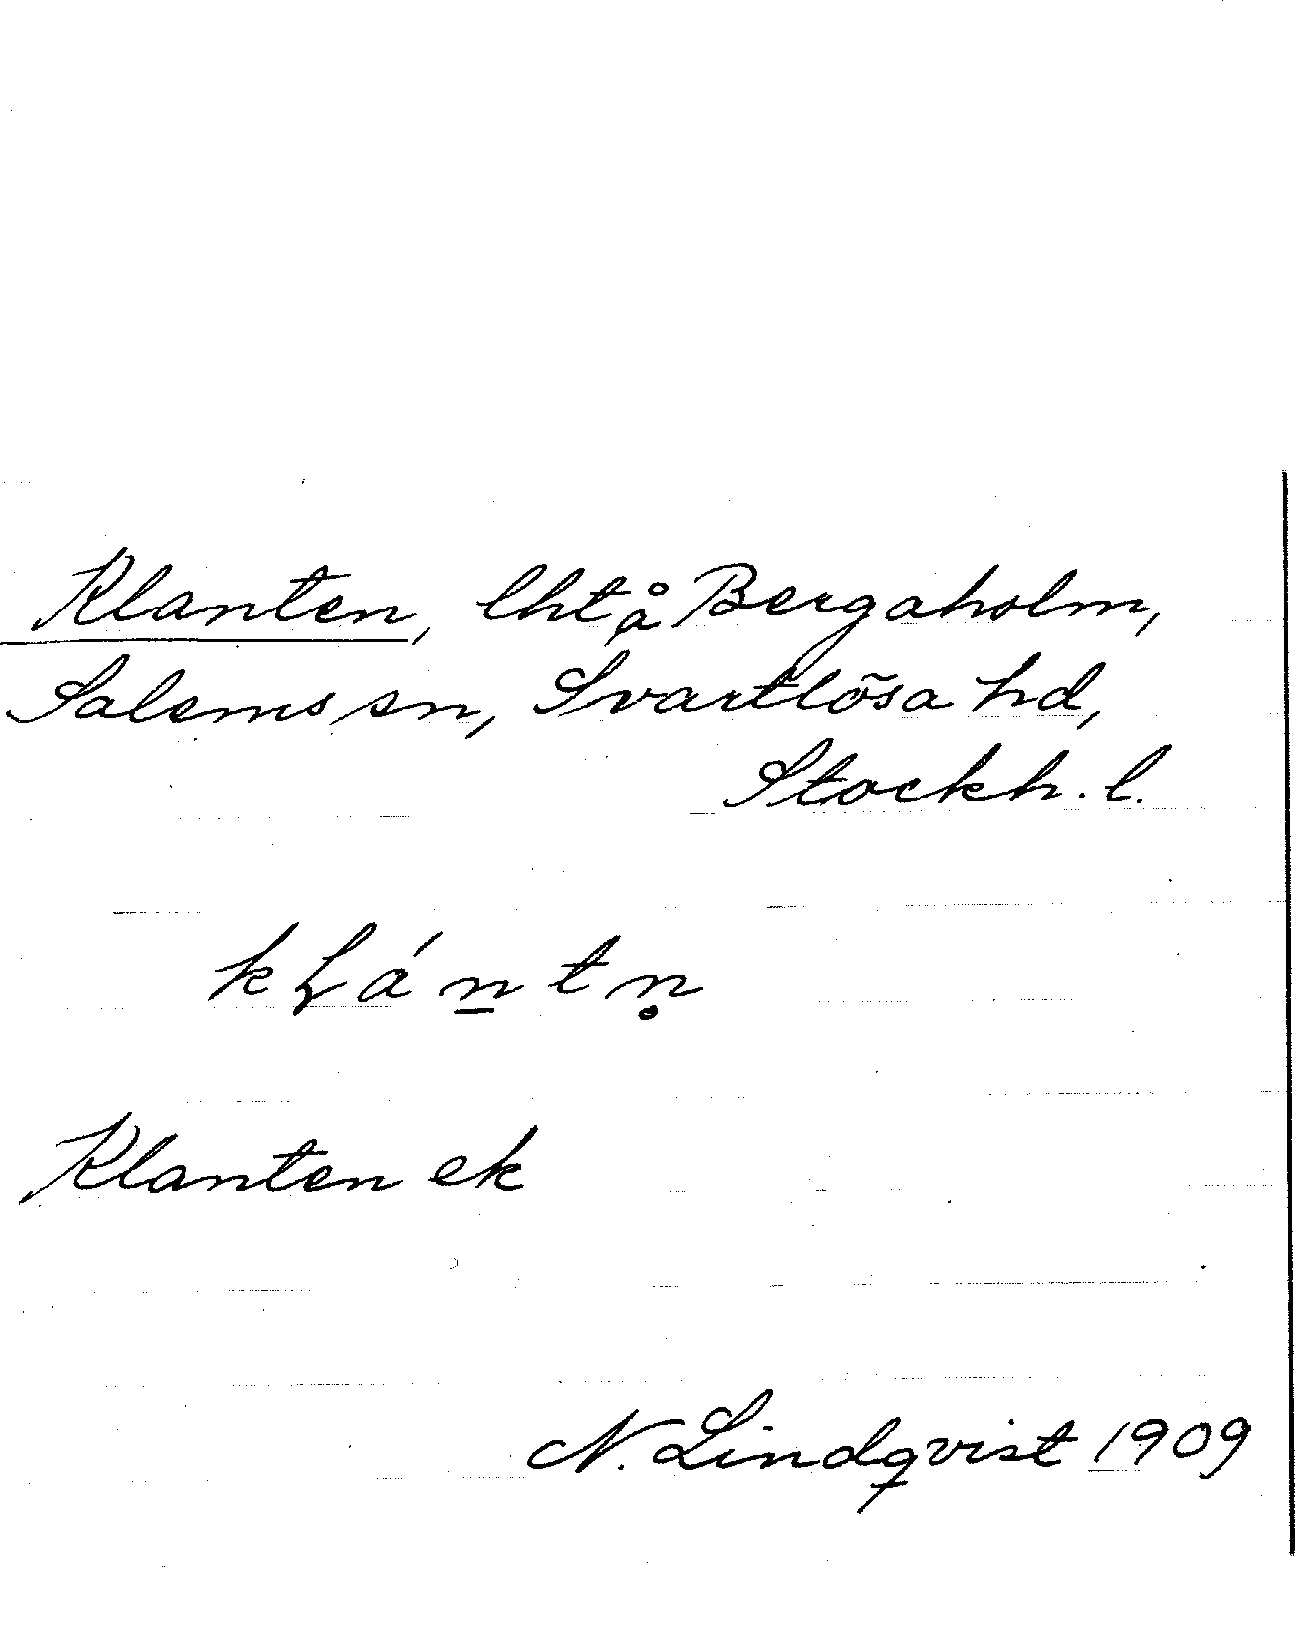 Klanten, lht å Bergaholm,
Salems sn, Svartlösa hd,
Stockh. l.
kɽá n̲ t n̥
Klanten ek
N. Lindqvist 1909